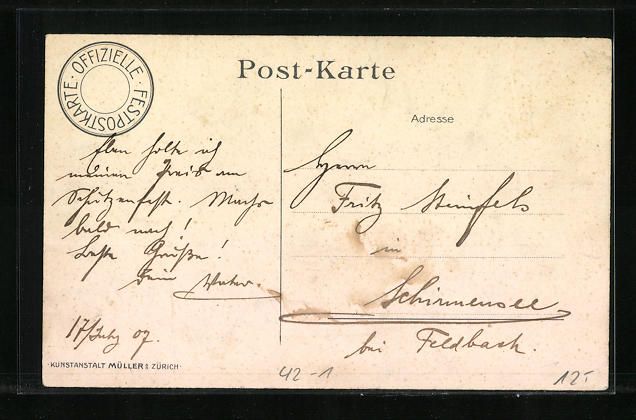 · OFFIZIELLE · FESTPOSTKARTE
Post-Karte
Adresse
Eben holte ich
meinen Preis am
Schützenfest. Machs
bald nach!
Beste Grüße!
Dein Vater.
17/July 07.
Herrn
Fritz Steinfels
in
Schirmensee
bei Feldbach.
KUNSTANSTALT MÜLLER & ZÜRICH
42-1
12.-